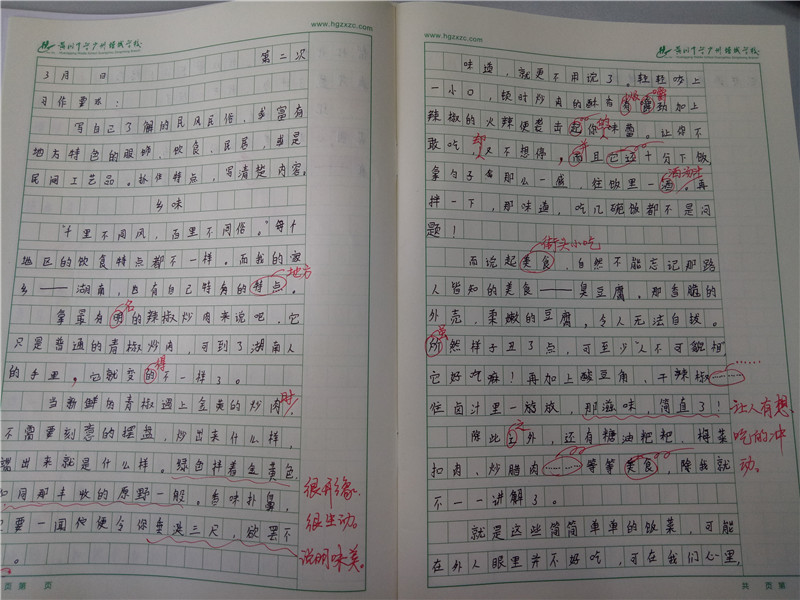 第二次
3月 日
习作要求：
写自己了解的民风民俗，或富有
地方特色的服饰、饮食、民居，或是
民间工艺品。抓住特点，写清楚内容。
乡味
“十里不同风，百里不同俗。”每个
地区的饮食特点都不一样。而我的家
地方
乡——湖南，也有自己特有的特点。
名
拿最有明的辣椒炒肉来说吧，它
只是普通的青椒炒肉，可到了湖南人
得
的手里，它就变的不一样了。
当新鲜的青椒遇上金黄的炒肉时
不需要刻意的摆盘，炒出来什么样，
端出来就是什么样。绿色拌着金黄色，
如同那丰收的原野一般。香味扑鼻，
要一闻 便令你垂涎三尺，欲罢不
。
很形象、
很生动。
说明味美。
页 第 页
www.hgzxzc.com
味道，就更不用说了。轻轻咬上
一小口，顿时炒肉的酥有 劲加上
辣椒的火辣便袭击起你 味蕾。让你不
的
却
敢吃，又不想停，而且它还十分下饭，
拿勺子舀那么一盛，往饭里一洒。再
拌一下，那味道，吃几碗饭都不是问
题！
街头小吃
而说起美食，自然不能忘记那路
人皆知的美食——臭豆腐。那香脆的
外壳，柔嫩的豆腐，令人无法自拔。
虽
所然样子丑了点，可至少人不可貌相
它好 嘛！再加上酸豆角、干辣椒……
往卤汁里一放放，那滋味，简直了！
让人有想
吃的冲
动。
之
除此 外，还有糖油粑粑、梅菜
扣肉、炒腊肉……等等美食，降我就
不一一讲解了。
就是这些简简单单的饭菜，可能
在外人眼里并不好吃，可在我们心里，
共 页 第